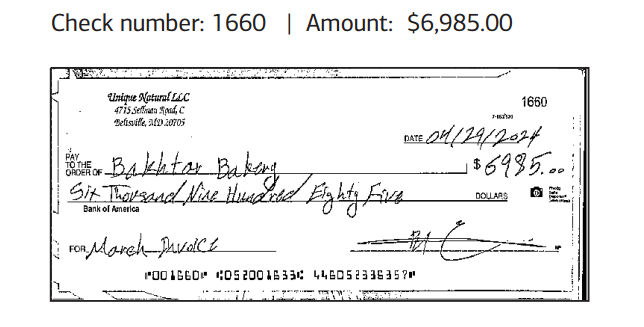 Check number: 1660 | Amount: $6,985.00
Unique Natural LLC
4715 Sellman Road, C
Beltsville, MD 20705
1660
DATE 04/29/2024
PAY TO THE ORDER OF Bakhtar Bakery $6985.00
Six Thousand Nine Hundred Eighty Five DOLLARS
Bank of America
FOR March Invoice